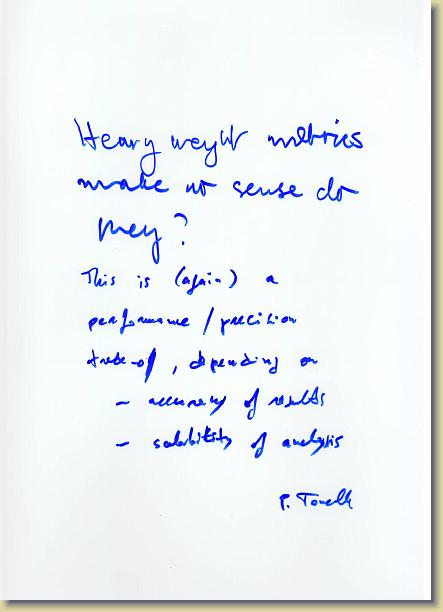 Heavy weight metrics
make no sense do
they?
This is (again) a
performance / precision
trade-off, depending on
- accuracy of results
- scalability of analysis
P. Tonella